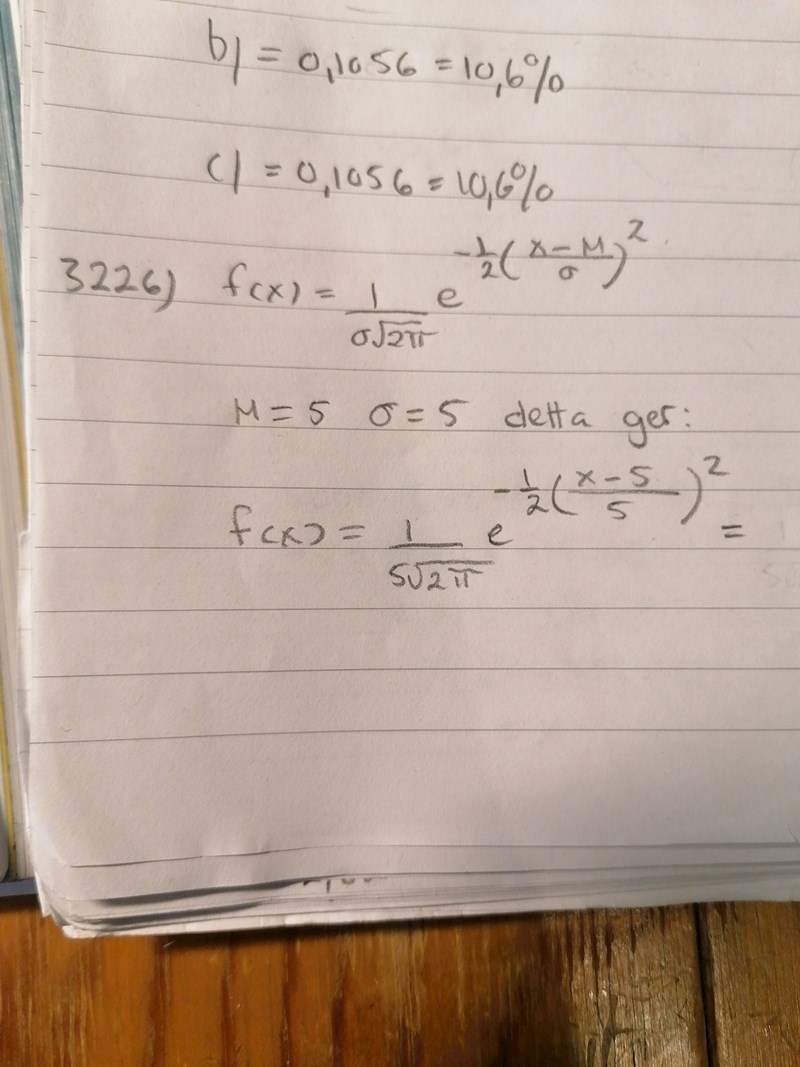 b) = 0,1056 = 10,6%
c) = 0,1056 = 10,6%
3226) f(x) = 1/(σ√2π) e^(-1/2((x-μ)/σ)^2)
μ = 5 σ = 5 detta ger:
f(x) = 1/(5√2π) e^(-1/2((x-5)/5)^2) =